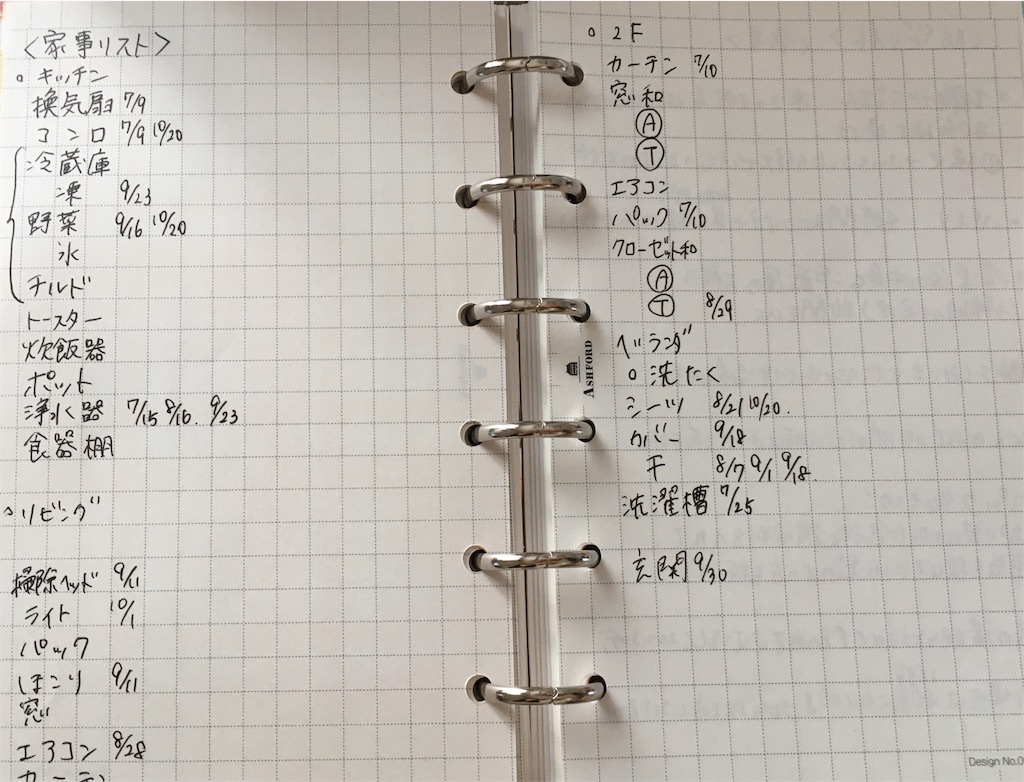 <家事リスト>
○ キッチン
換気扇 7/9
コンロ 7/9 10/20
冷蔵庫
凍 9/23
野菜 9/16 10/20
氷
チルド
トースター
炊飯器
ポット
浄水器 7/15 8/16. 9/23
食器棚
○リビング
掃除ヘッド 9/11
ライト 10/1
パック
ほこり 9/11
窓
エアコン 8/28
カーテン
○ 2F
カーテン 7/10
窓 和
Ⓐ
Ⓣ
エアコン
パック 7/10
クローゼット和
Ⓐ
Ⓣ 8/29
ベランダ
○ 洗たく
シーツ 8/21 10/20.
カバー 9/18
干 8/7 9/1 9/18.
洗濯槽 7/25
玄関 9/30
ASHFORD
Design No.0